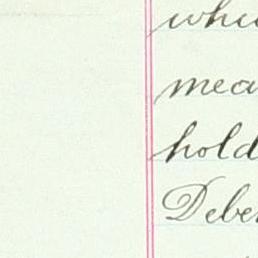 whi
mea
hold
Debe